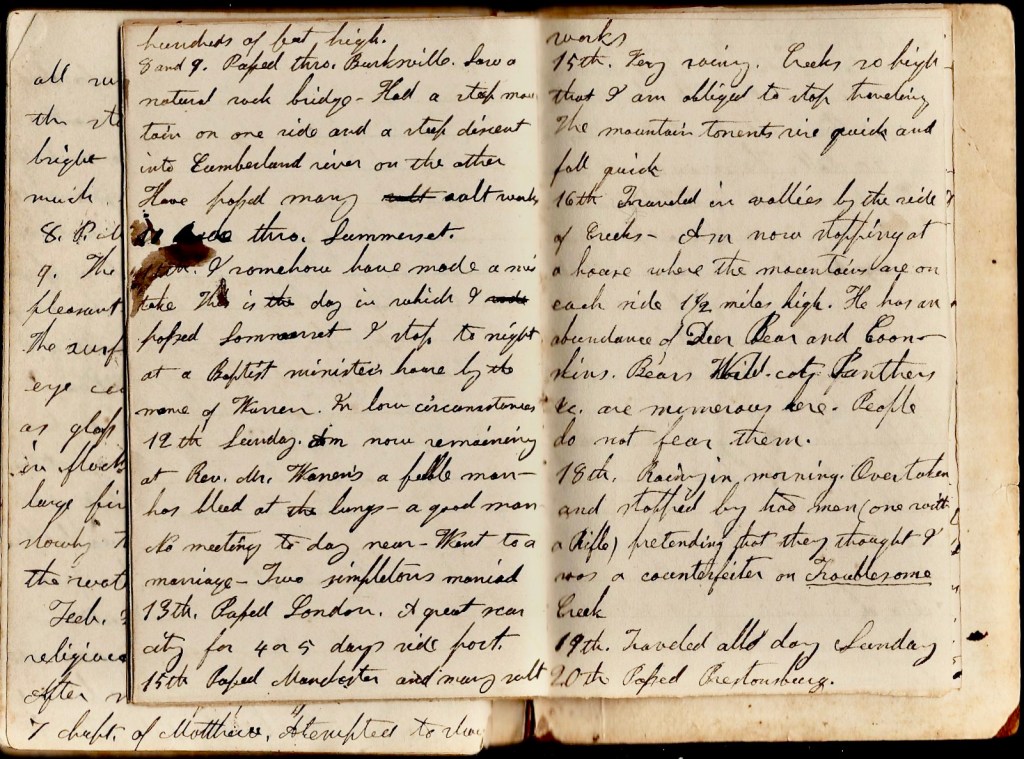 all
the
bright
much
8.
9. The
pleasant
The surf
eye
as glass
in flock
large
slowly
the wat
Feb.
religious
after
7 chapt. of Matthew. Attempted to
hundreds of feet high.
8 and 9. Passed thro. Burksville. Saw a
natural rock bridge - Had a steep moun
tain on one side and a steep discent
into Cumberland river on the other
Have passed many salt salt works
thro. Summerset.
I somehow have made a mis
take This is the day in which I
passed Sommerset I stop to night
at a Baptist minister's house by the
name of Warren. In low circumstances
12th Sunday. Am now remaining
at Rev. Mr. Warren's a feble man -
has bleed at the lungs - a good man
No meeting to day near - Went to a
marriage - Two simpletons maried
13th. Passed London. A great scar
city for 4 or 5 days ride past.
15th Passed Manchester and many salt
works
15th. Very rainy. Creeks so high
that I am obliged to stop traveling
The mountain torrents rise quick and
fall quick
16th Traveled in vallies by the side
of Creeks - Am now stopping at
a house where the mountains are on
each side 1 1/2 miles high. He has an
abundance of Deer Bear and Coon-
skins. Bears Wild-cats Panthers
&c. are numerous here. People
do not fear them.
18th. Rainy in morning. Overtaken
and stopped by two men (one with
a Rifle) pretending that they thought I
was a counterfeiter on Troublesome
Creek
19th. Traveled all day Sunday
20th Passed Prestonsburg.